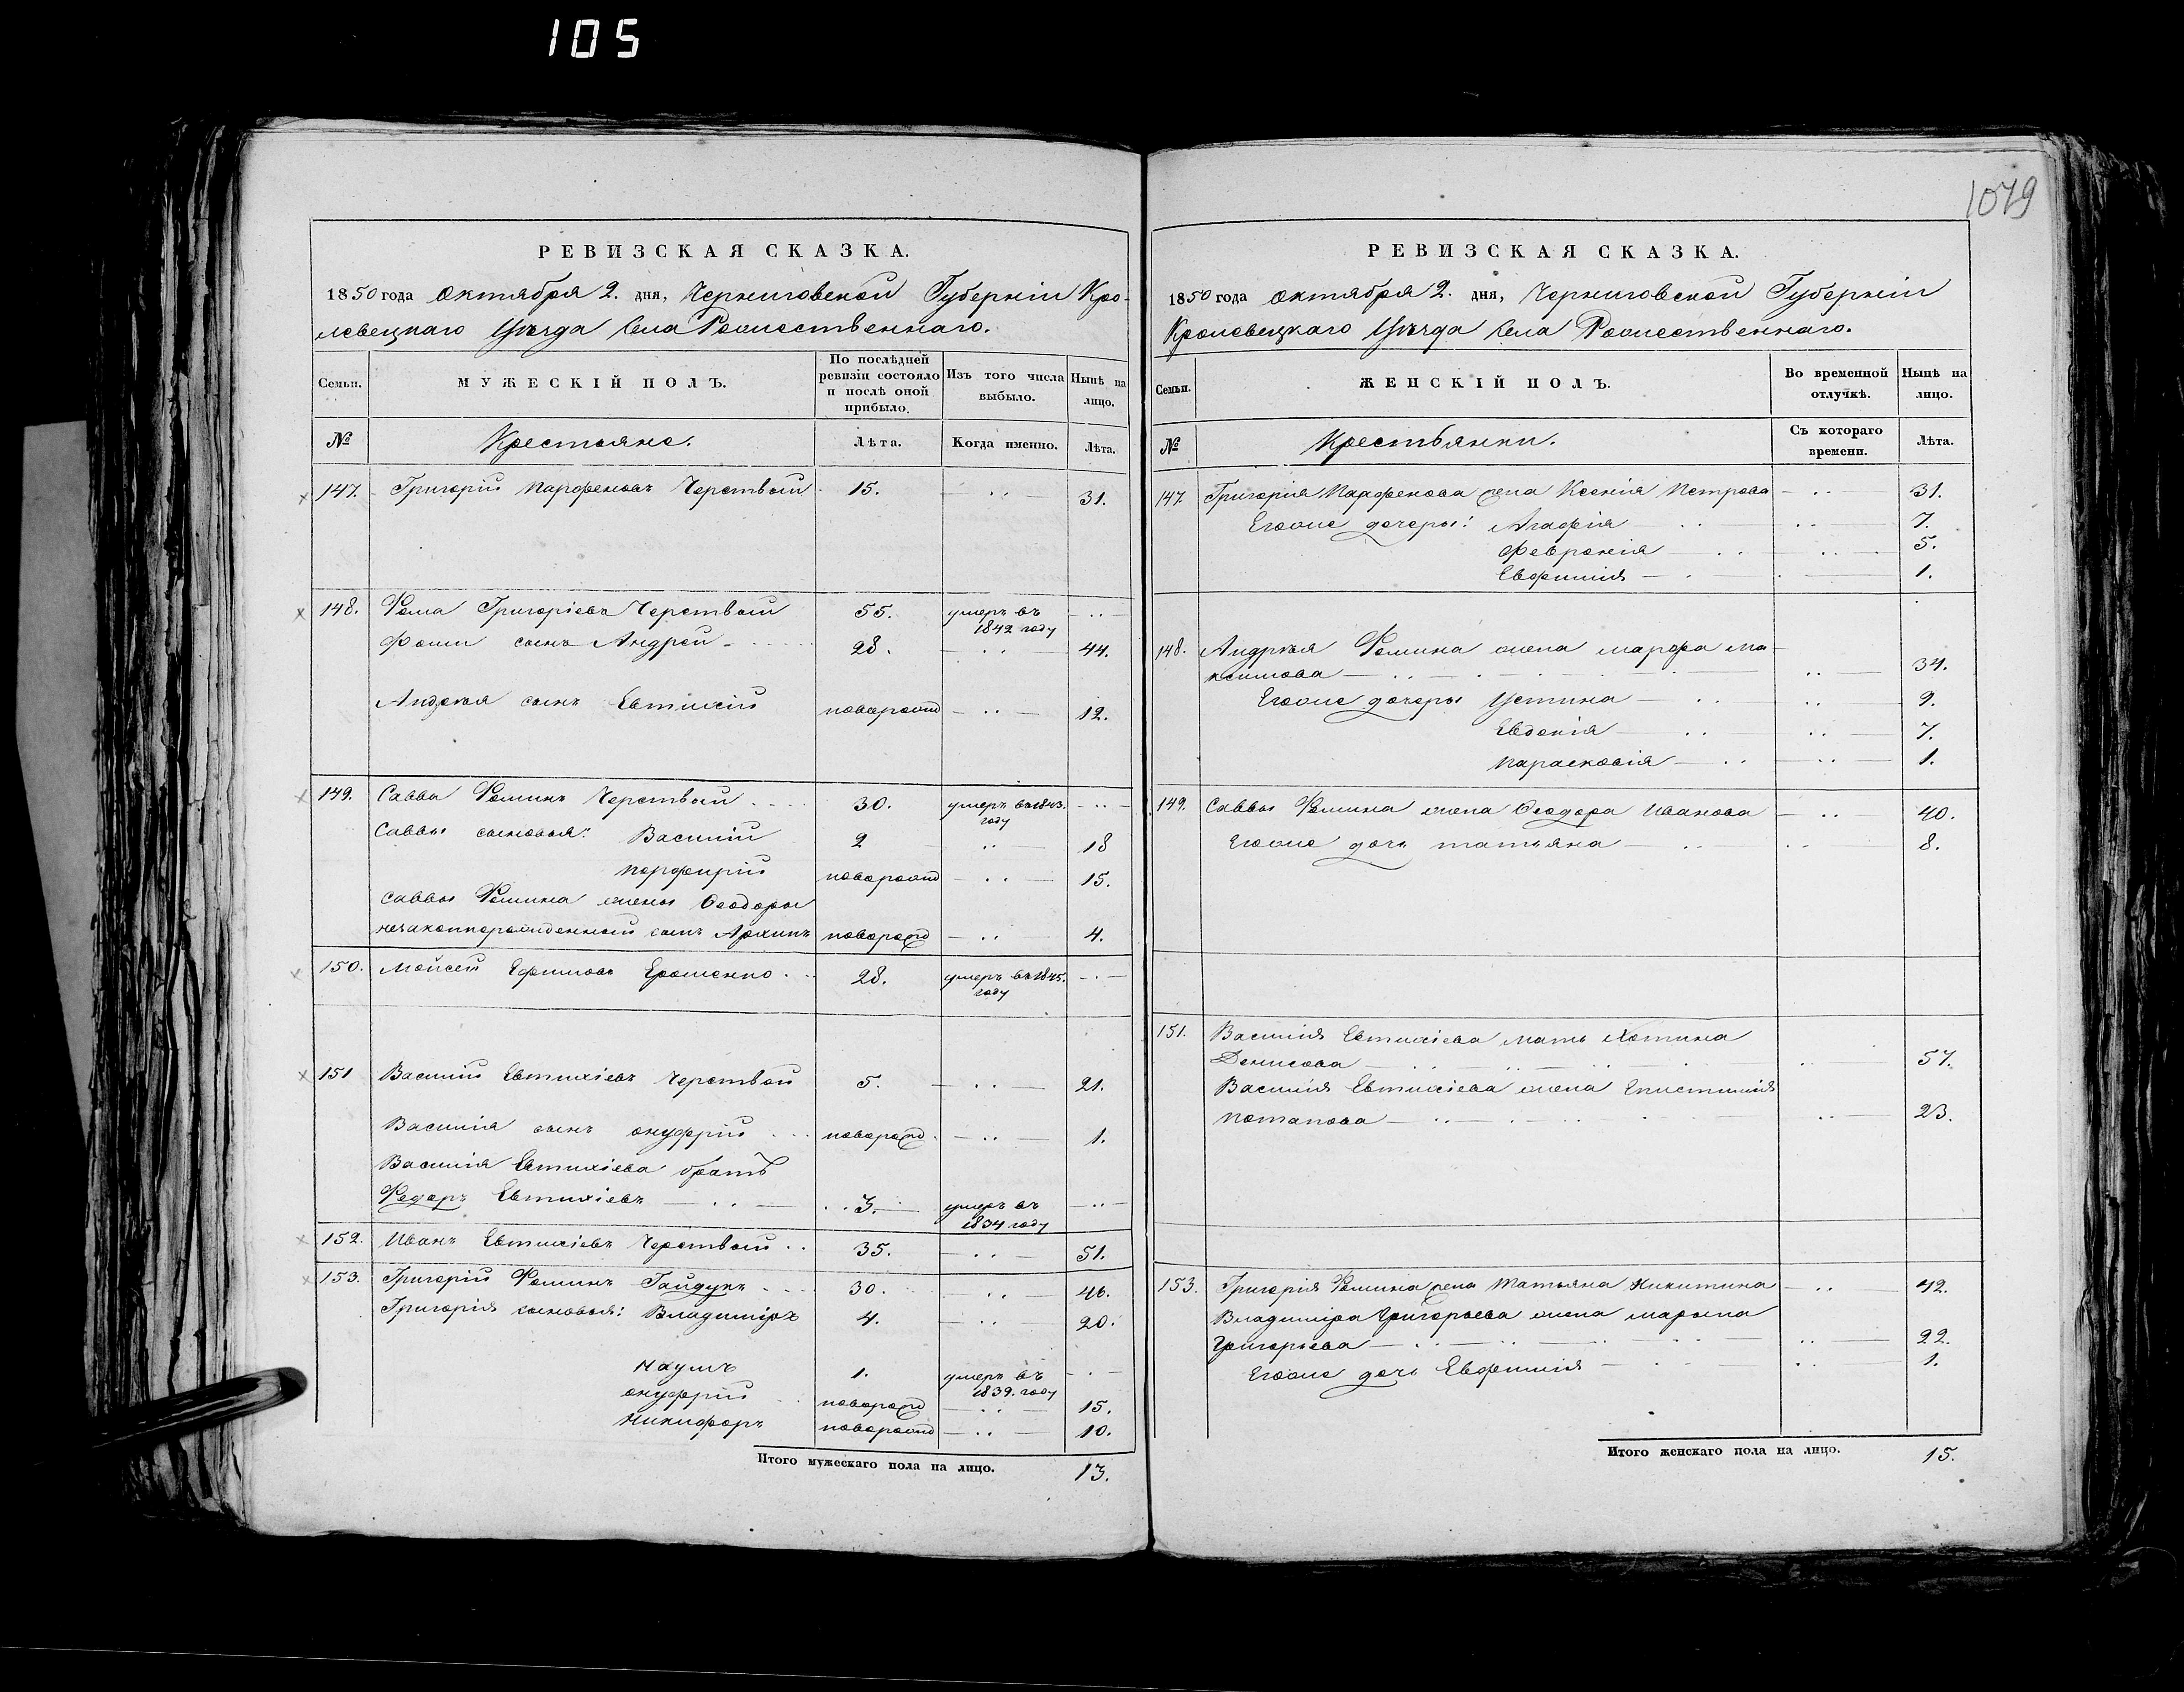 105
1079
РЕВИЗСКАЯ СКАЗКА.
1850 года Октября 2. дня, Черниговской Губерніи Кро-
левецкаго Уѣзда Села Рожественнаго.
Семьи. МУЖЕСКІЙ ПОЛЪ. По послѣдней ревизіи состояло и послѣ оной прибыло. Изъ того числа выбыло. Нынѣ на лицо.
№ Крестьяне. Лѣта. Когда именно. Лѣта.
147. Григорій Парфеновъ Черствый 15. 31.
148. Фома Григоріевъ Черствый 55. умеръ въ 1842 году
Фомы сынъ Андрей 28. 44.
Андрѣя сынъ Евтихій новорожд 12.
149. Савва Фоминъ Черствый 30. умеръ въ 1843. году
Саввы сыновья: Василій 2 18
Порфирій новорожд 15.
Саввы Фомина жены Феодоры
незаконнорожденный сынъ Архипъ новорожд 4.
150. Мойсей Ефимовъ Ерошенко 28. умеръ въ 1845. году
151 Василій Евтихіевъ Черствый 5. 21.
Василія сынъ Онуфрій новорожд. 1.
Василія Евтихіева братъ
Федоръ Евтихіевъ 3. умеръ въ 1834 году
152. Иванъ Евтихіевъ Черствый 35. 51.
153. Григорій Фоминъ Гайдукъ 30. 46.
Григорія сыновья: Владиміръ 4. 20.
Наумъ 1. умеръ въ 1839. году
Онуфрій новорожд 15.
Никифоръ новорожд 10.
Итого мужескаго пола на лицо. 13.
РЕВИЗСКАЯ СКАЗКА.
1850 года Октября 2. дня, Черниговской Губерніи
Кролевецкаго Уѣзда Села Рожественнаго.
Семьи. ЖЕНСКІЙ ПОЛЪ. Во временной отлучкѣ. Нынѣ на лицо.
№ Крестьянки. Съ котораго времени. Лѣта.
147. Григорія Парфенова жена Ксенія Петрова 31.
Егоже дочеры: Агафія 7.
Февронія 5.
Евфимія 1.
148. Андрѣя Фомина жена Марфа Ма-
ксимова 34.
Егоже дочеры Устина 9.
Евдокія 7.
Парасковія 1.
149. Саввы Фомина жена Феодора Иванова 40.
Егоже дочь Татьяна 8.
151. Василія Евтихіева мать Хотина
Денисова 57.
Василія Евтихіева жена Епистимія
Потапова 23.
153. Григорія Фомина жена Татьяна Никитина 42.
Владиміра Григорьева жена Марьяна
Григорьева 22.
Егоже дочь Евфимія 1.
Итого женскаго пола на лицо. 15.